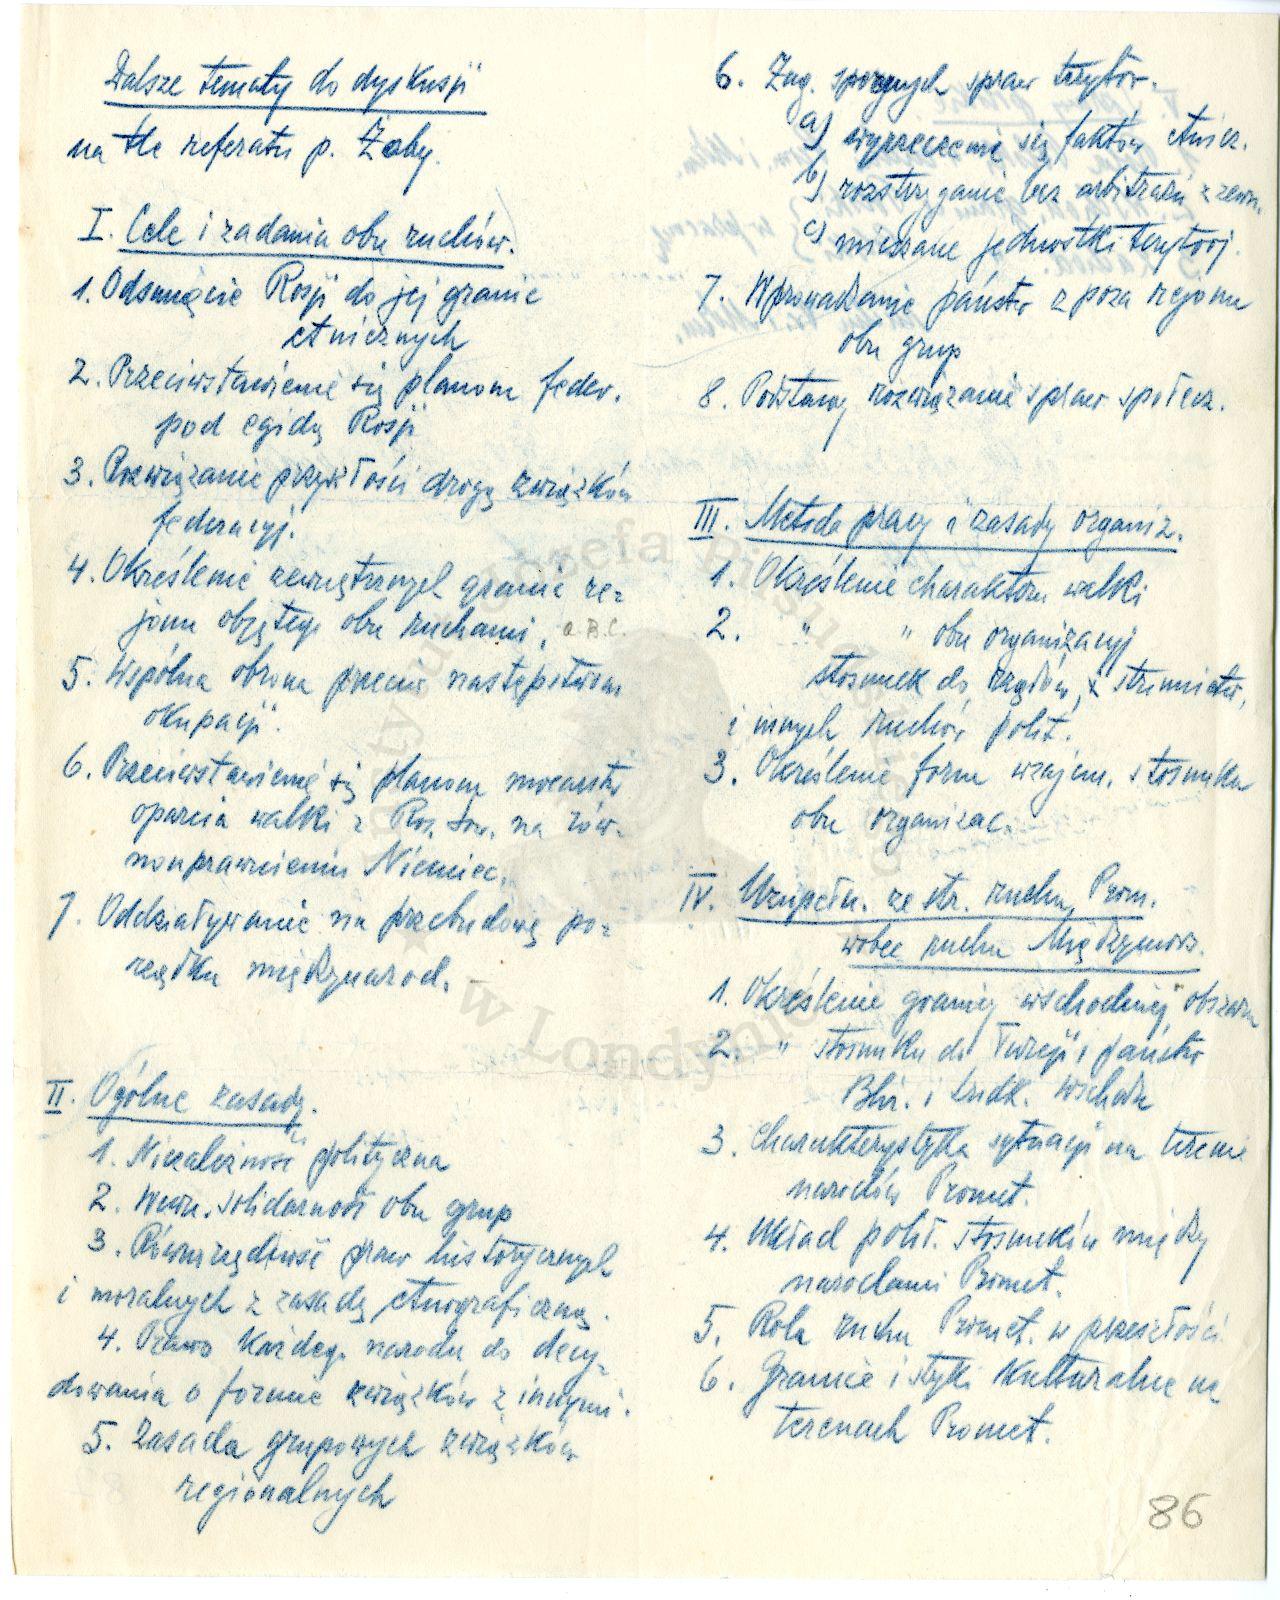 Dalsze tematy do dyskusji
na tle referatu p. Żaby.
I. Cele i zadania obu ruchów.
1. Odsunięcie Rosji do jej granic
etnicznych
2. Przeciwstawienie się planom feder.
pod egidą Rosji
3. Rozwiązanie przyszłości drogą związków
federacyj.
4. Określenie zewnętrznych granic re-
jonu objętego obu ruchami, a.B.C.
5. Wspólna obrona przeciw następstwom
okupacji.
6. Przeciwstawienie się planom mocarstw
oparcia walki z Ros. Sow. na rów-
nouprawnieniu Niemiec.
7. Oddziaływanie na przebudowę po-
rządku międzynarod.
II. Ogólne zasady.
1. Niezależność polityczna
2. Wewn. solidarność obu grup
3. Równorzędność praw historycznych
i moralnych z zasadą etnograficzną.
4. Prawo każdego narodu do decy-
dowania o formie związków z innymi.
5. Zasada grupowych związków
regionalnych
6. Zag. spornych spraw terytor.
a) wyrzeczenie się faktów etnicz.
b) rozstrzyganie bez arbitrażu z zewn.
c) mieszane jednostki terytorj.
7. Wprowadzanie państw z poza rejonu
obu grup
8. Podstawy rozwiązania spraw społecz.
III. Metoda pracy i zasady organiz.
1. Określenie charakteru walki
2. " " obu organizacyj
stosunek do rządów, stronnictw,
i innych ruchów polit.
3. Określenie form wzajem. stosunku
obu organizac.
IV. Uzupełn. ze str. ruchu Prom.
wobec ruchu Międzymorz.
1. Określenie granicy wschodniej obszaru
2. " stosunku do Turcji i państw
Bliż. i Środk. Wschodu
3. Charakterystyka sytuacji na terenie
narodów Promet.
4. Układ polit. stosunków między
narodami Promet.
5. Rola ruchu Promet. w przeszłości
6. Granice i styki kulturalne na
terenach Promet.
86
Instytut Józefa Piłsudskiego
w Londynie